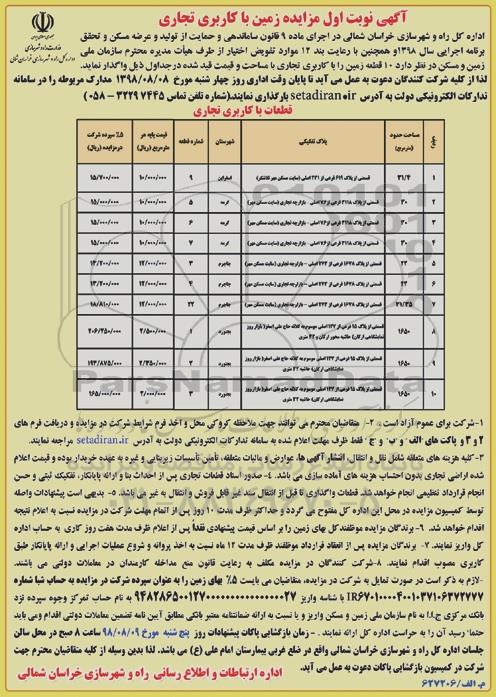 آگهی نوبت اول مزایده زمین با کاربری تجاری
اداره کل راه و شهرسازی خراسان شمالی در اجرای ماده ۹ قانون ساماندهی و حمایت از تولید و عرضه مسکن و تحقق
برنامه اجرایی سال ۱۳۹۸و همچنین با رعایت بند ۱۲ موارد تفویض اختیار از طرف هیأت مدیره محترم سازمان ملی
زمین و مسکن در نظر دارد ۱۰ قطعه زمین را با کاربری تجاری با مساحت و قیمت قید شده درجداول ذیل واگذار نماید.
لذا از کلیه شرکت کنندگان دعوت به عمل می آید تا پایان وقت اداری روز چهار شنبه مورخ ۱۳۹۸/۰۸/۰۸ مدارک مربوطه را در سامانه
تدارکات الکترونیکی دولت به آدرس setadiran.ir بارگذاری نمایند.(شماره تلفن تماس ۳۲۲۹۷۴۴۵ - ۰۵۸)
قطعات با کاربری تجاری
ردیف مساحت حدود (مترمربع) پلاک تفکیکی شهرستان شماره قطعه قیمت پایه هر مترمربع (ریال) ۵٪ سپرده شرکت درمزایده (ریال)
۱ ۳۱/۴ قسمتی از پلاک ۶۱۹ فرعی از ۲۳۱ اصلی (سایت مسکن مهر کلاتنکر) اسفراین ۹ ۱۰/۰۰۰/۰۰۰ ۱۵/۷۰۰/۰۰۰
۲ ۳۰ قسمتی از پلاک ۳۱۱۸ فرعی از ۷۶ اصلی - بازارچه تجاری (سایت مسکن مهر) گرمه ۵ ۱۰/۰۰۰/۰۰۰ ۱۵/۰۰۰/۰۰۰
۳ ۳۰ قسمتی از پلاک ۳۱۱۸ فرعی از ۷۶ اصلی - بازارچه تجاری (سایت مسکن مهر) گرمه ۶ ۱۰/۰۰۰/۰۰۰ ۱۵/۰۰۰/۰۰۰
۴ ۳۰ قسمتی از پلاک ۳۱۱۸ فرعی از ۷۶ اصلی - بازارچه تجاری (سایت مسکن مهر) گرمه ۷ ۱۰/۰۰۰/۰۰۰ ۱۵/۰۰۰/۰۰۰
۵ ۲۲ فرعی از ۲۳۲ اصلی - بازارچه تجاری (سایت مسکن مهر) جاجرم ۳ ۱۲/۰۰۰/۰۰۰ ۱۳/۲۰۰/۰۰۰
۶ ۲۲ فرعی از ۲۳۲ اصلی - بازارچه تجاری (سایت مسکن مهر) جاجرم ۴ ۱۲/۰۰۰/۰۰۰ ۱۳/۲۰۰/۰۰۰
۷ ۳۱/۳۵ فرعی از ۲۳۲ اصلی - بازارچه تجاری (سایت مسکن مهر) جاجرم ۲۲ ۱۲/۰۰۰/۰۰۰ ۱۸/۸۱۰/۰۰۰
۸ ۱۶۵۰ قسمتی از پلاک ۱۵ فرعی از ۱۳۲ اصلی موسوم به کلاته حاج علی اصغر( بازار روز نمایشگاهی ارکان) حاشیه محور ارکان و ۴۲ متری بجنورد ۱ ۲/۵۰۰/۰۰۰ ۲۰۶/۲۵۰/۰۰۰
۹ ۱۶۵۰ قسمتی از پلاک ۱۵ فرعی از ۱۳۲ اصلی موسوم به کلاته حاج علی اصغر( بازار روز نمایشگاهی ارکان) حاشیه ۴۲ متری بجنورد ۲ ۲/۳۵۰/۰۰۰ ۱۹۳/۸۷۵/۰۰۰
۱۰ ۱۶۵۰ قسمتی از پلاک ۱۵ فرعی از ۱۳۲ اصلی موسوم به کلاته حاج علی اصغر( بازار روز نمایشگاهی ارکان) حاشیه ۴۲ متری بجنورد ۳ ۲/۰۰۰/۰۰۰ ۱۶۵/۰۰۰/۰۰۰
۱-شرکت برای عموم آزاد است . ۲- متقاضیان محترم می توانند جهت ملاحظه کروکی محل و اخذ فرم شرایط شرکت در مزایده و دریافت فرم های
۲ و ۳ و پاکت های الف - و ب - و ج - فقط ظرف مهلت اعلام شده به سامانه تدارکات الکترونیکی دولت به آدرس setadiran.ir مراجعه نمایند.
۳-کلیه هزینه های متعلقه شامل نقل و انتقال، انتشار آگهی ها، عوارض و مالیات متعلقه، تأمین تأسیسات زیربنایی و غیره به عهده خریدار بوده و قیمت اعلام
شده اراضی تجاری بدون احتساب هزینه های آماده سازی می باشد. ۴- صدور اسناد قطعات تجاری پس از احداث بنا و ارائه پایانکار، تفکیک ثبتی و حسن
انجام قرارداد تنظیمی انجام خواهد شد. قطعات واگذاری تا قبل از انتقال سند غیر قابل فروش و انتقال به غیر می باشد. ۵- بدیهی است پیشنهادات واصله
توسط کمیسیون مزایده در محل این اداره کل مفتوح می گردد و حداکثر ظرف مدت ۱۰ روز پس از اتمام مهلت شرکت در مزایده نسبت به اعلام نتیجه
اقدام خواهد شد. ۶- برندگان مزایده موظفند کل بهای زمین را بر اساس قیمت پیشنهادی نقداً پس از اعلام ظرف مدت هفت روز کاری به حساب اداره
کل واریز نمایند. ۷- برندگان مزایده پس از انعقاد قرارداد موظفند ظرف مدت ۱۲ ماه نسبت به اخذ پروانه و شروع عملیات اجرایی و ارائه پایانکار طبق
کاربری مصوب اقدام نمایند. ۸-شرکت کنندگان در مزایده مکلف به رعایت قانون منع مداخله کارمندان در معاملات دولتی می باشند.
-لازم به ذکر است در صورت تمایل به شرکت در مزایده، متقاضیان می بایست ۵٪ بهای زمین را به عنوان سپرده شرکت در مزایده به حساب شبا شماره
به نام حساب تمرکز وجوه سپرده نزد
بانک مرکزی ج.ا.ا به نام سازمان ملی زمین و مسکن واریز و یا نسبت به ارائه ضمانتنامه معتبر بانکی مطابق آیین نامه تضمین معاملات دولتی اقدام ومی باید
حتما رسید آن را به حراست اداره کل ارائه نمایند . - زمان بازگشایی پاکات پیشنهادات روز پنج شنبه مورخ ۹۸/۰۸/۰۹ ساعت ۸ صبح در محل سالن
جلسات اداره کل راه و شهرسازی خراسان شمالی واقع در ضلع غربی بیمارستان امام علی (ع) می باشد. لذا بدین وسیله از کلیه متقاضیان محترم جهت
شرکت در کمیسیون بازگشایی پاکات دعوت به عمل می آید.
اداره ارتباطات و اطلاع رسانی راه و شهرسازی خراسان شمالی
م.الف/۶۲۷۲۰۶